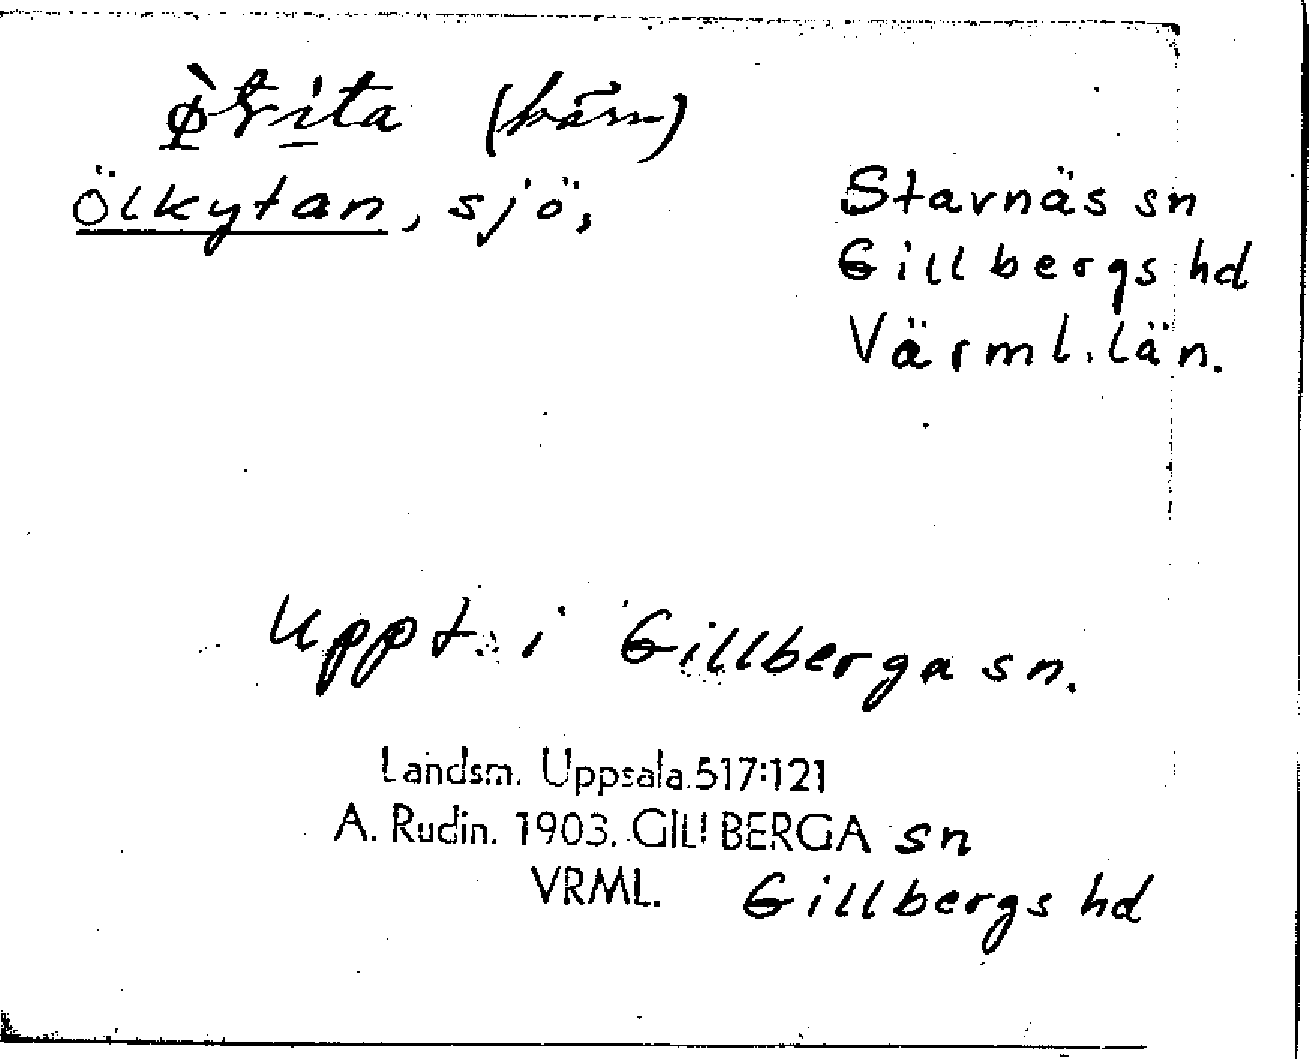 (tjärn)
Ölkytan, sjö,
Stavnäs sn
Gillbergs hd
Värml. län.
Uppt. i Gillberga sn.
Landsm. Uppsala. 517:121
A. Rudin. 1903. GILLBERGA sn
VRML. Gillbergs hd